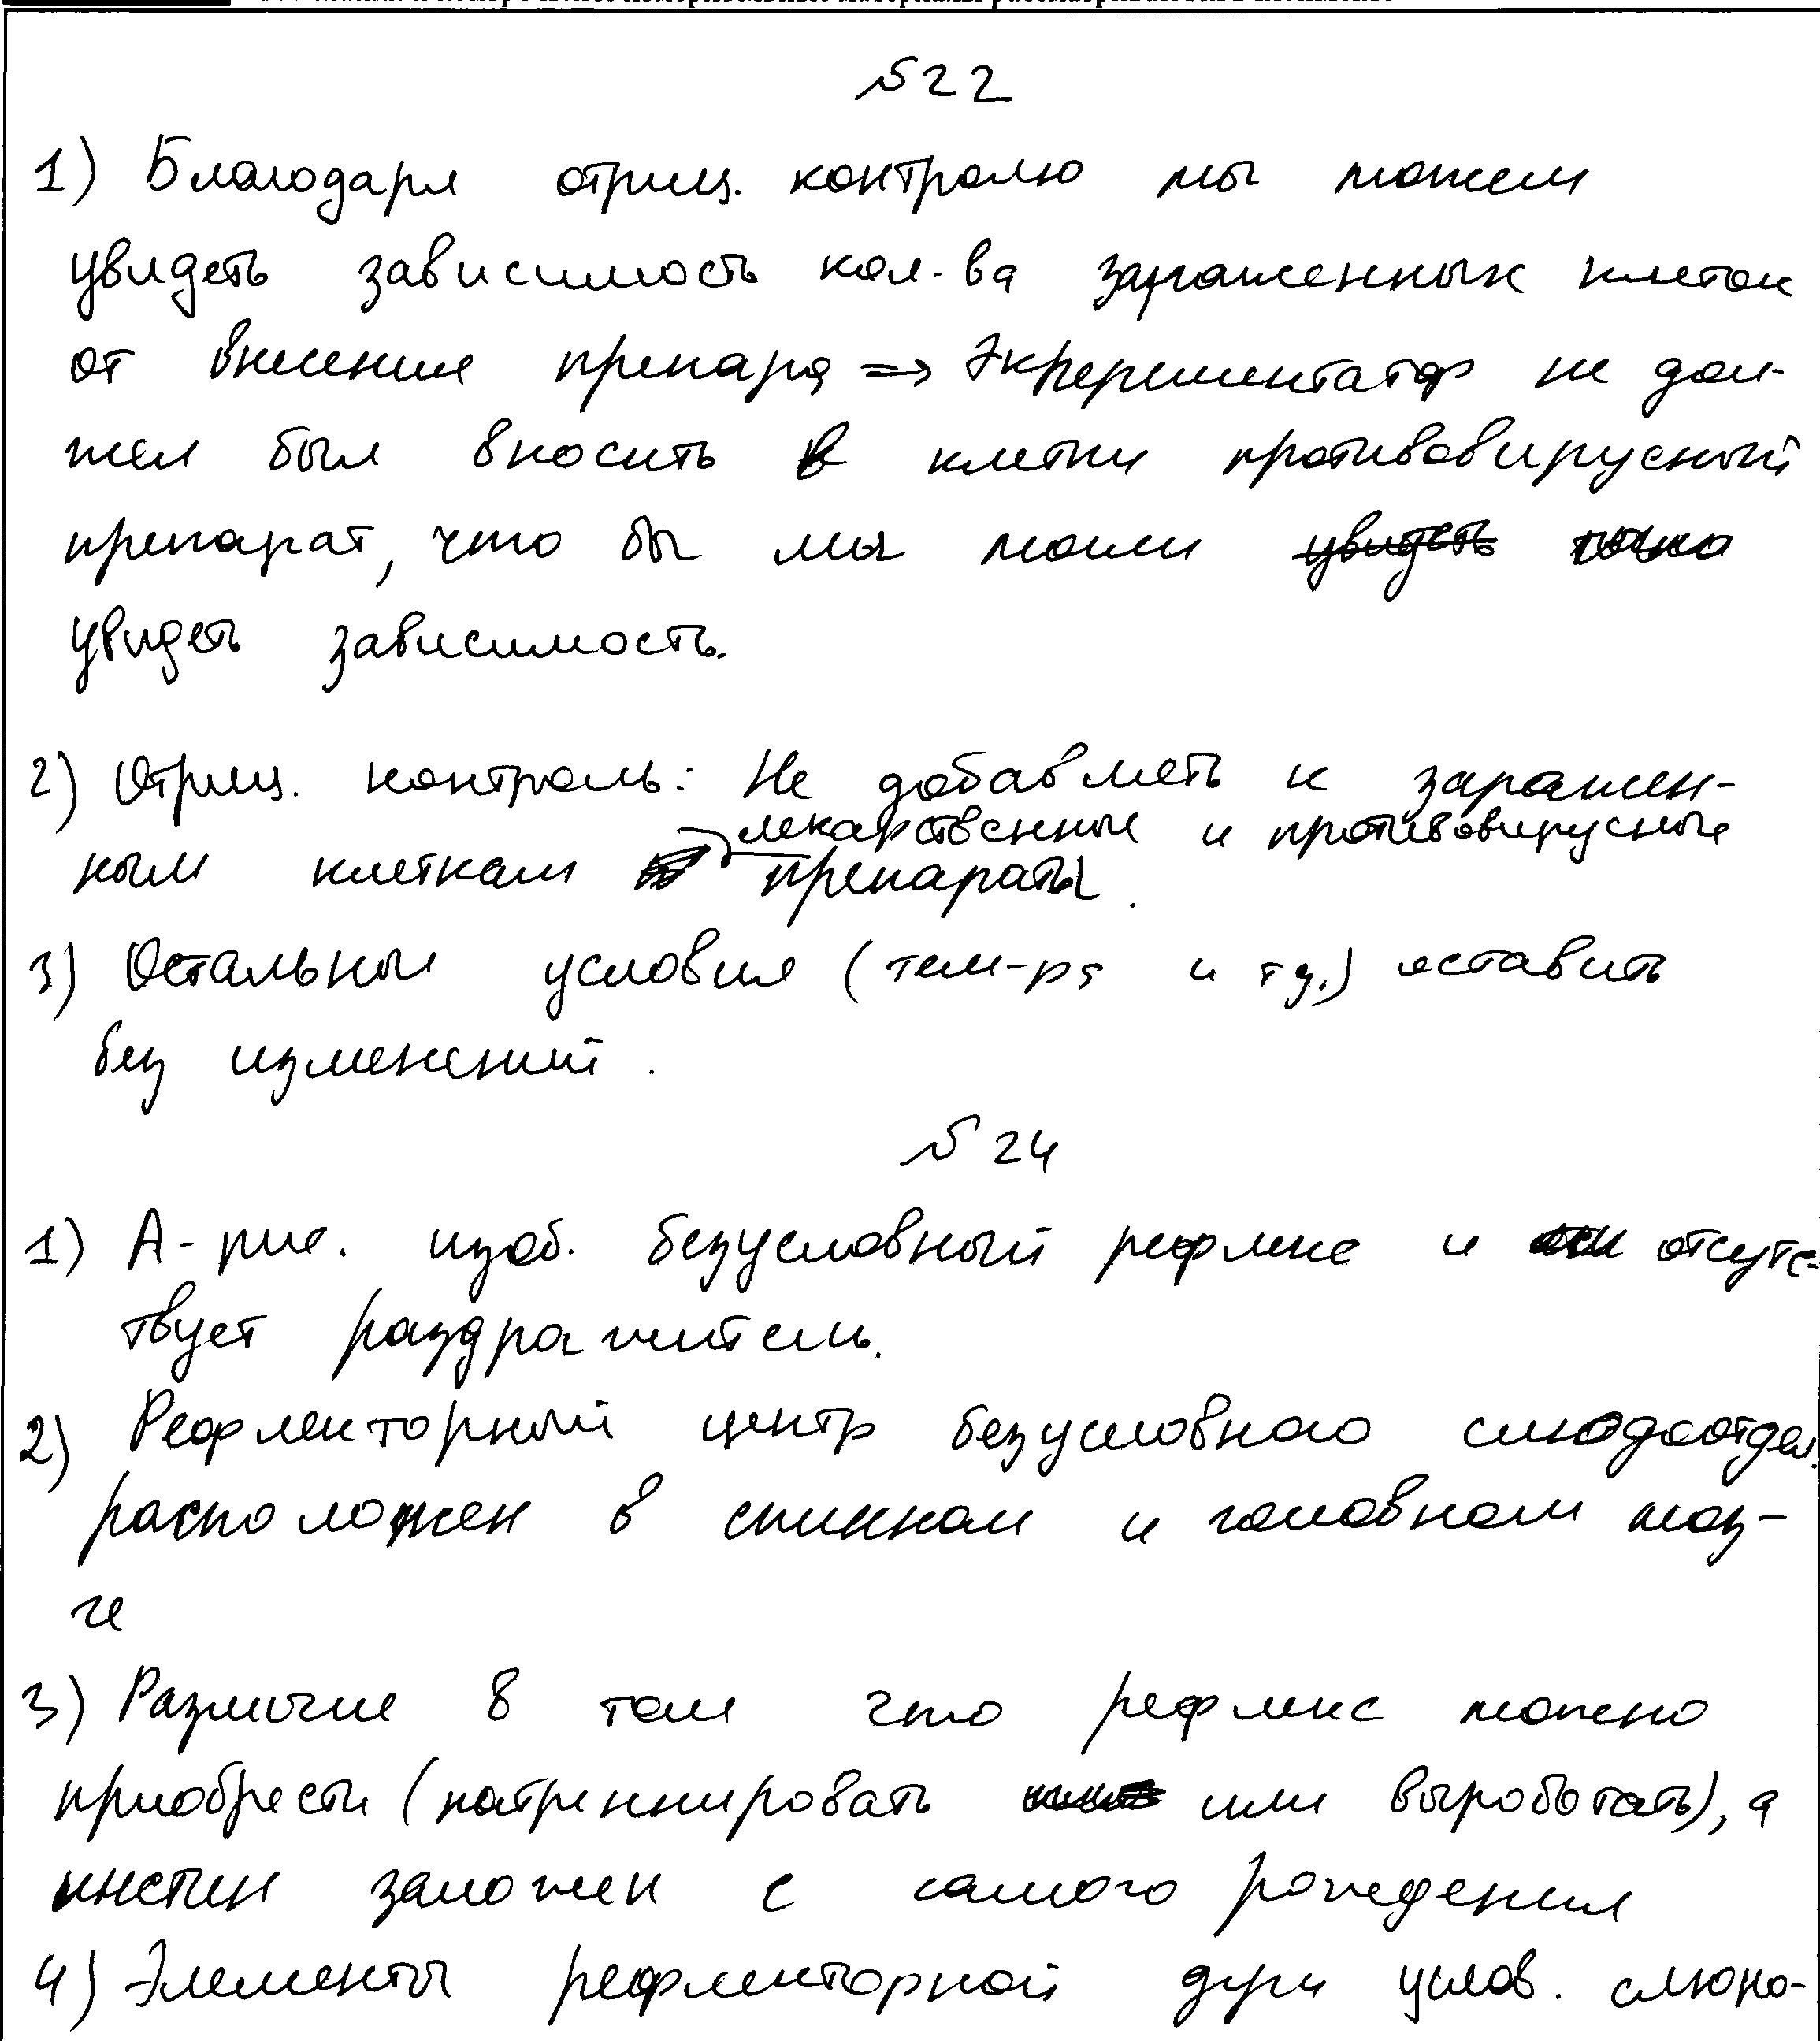 №22
1) Благодаря отриц. контролю мы можем
увидеть зависимость кол-ва зараженных клеток
от внесения препара => Экпериментатор не дол-
жен был вносить в клетки противовирусный
препарат, что бы мы могли увидеть
увидеть зависимость.
2) Отриц. контроль: Не добавлять к заражен-
лекарственные и противовирусные
ным клеткам препараты.
3) Остальные условия (тем-ра и тд.) оставить
без изменений.
№24
1) А - рис. изоб. безусловный рефлекс и отсутс-
твует раздражитель.
2) Рефлекторный центр безусловного слюдоотдел.
расположен в спинном и головном моз-
ге
3) Различие в том что рефлекс можно
приобрести (натреннировать или выроботать), а
инстин заложен с самого рождения
4) Элементы рефлекторной дуги услов. слюно-